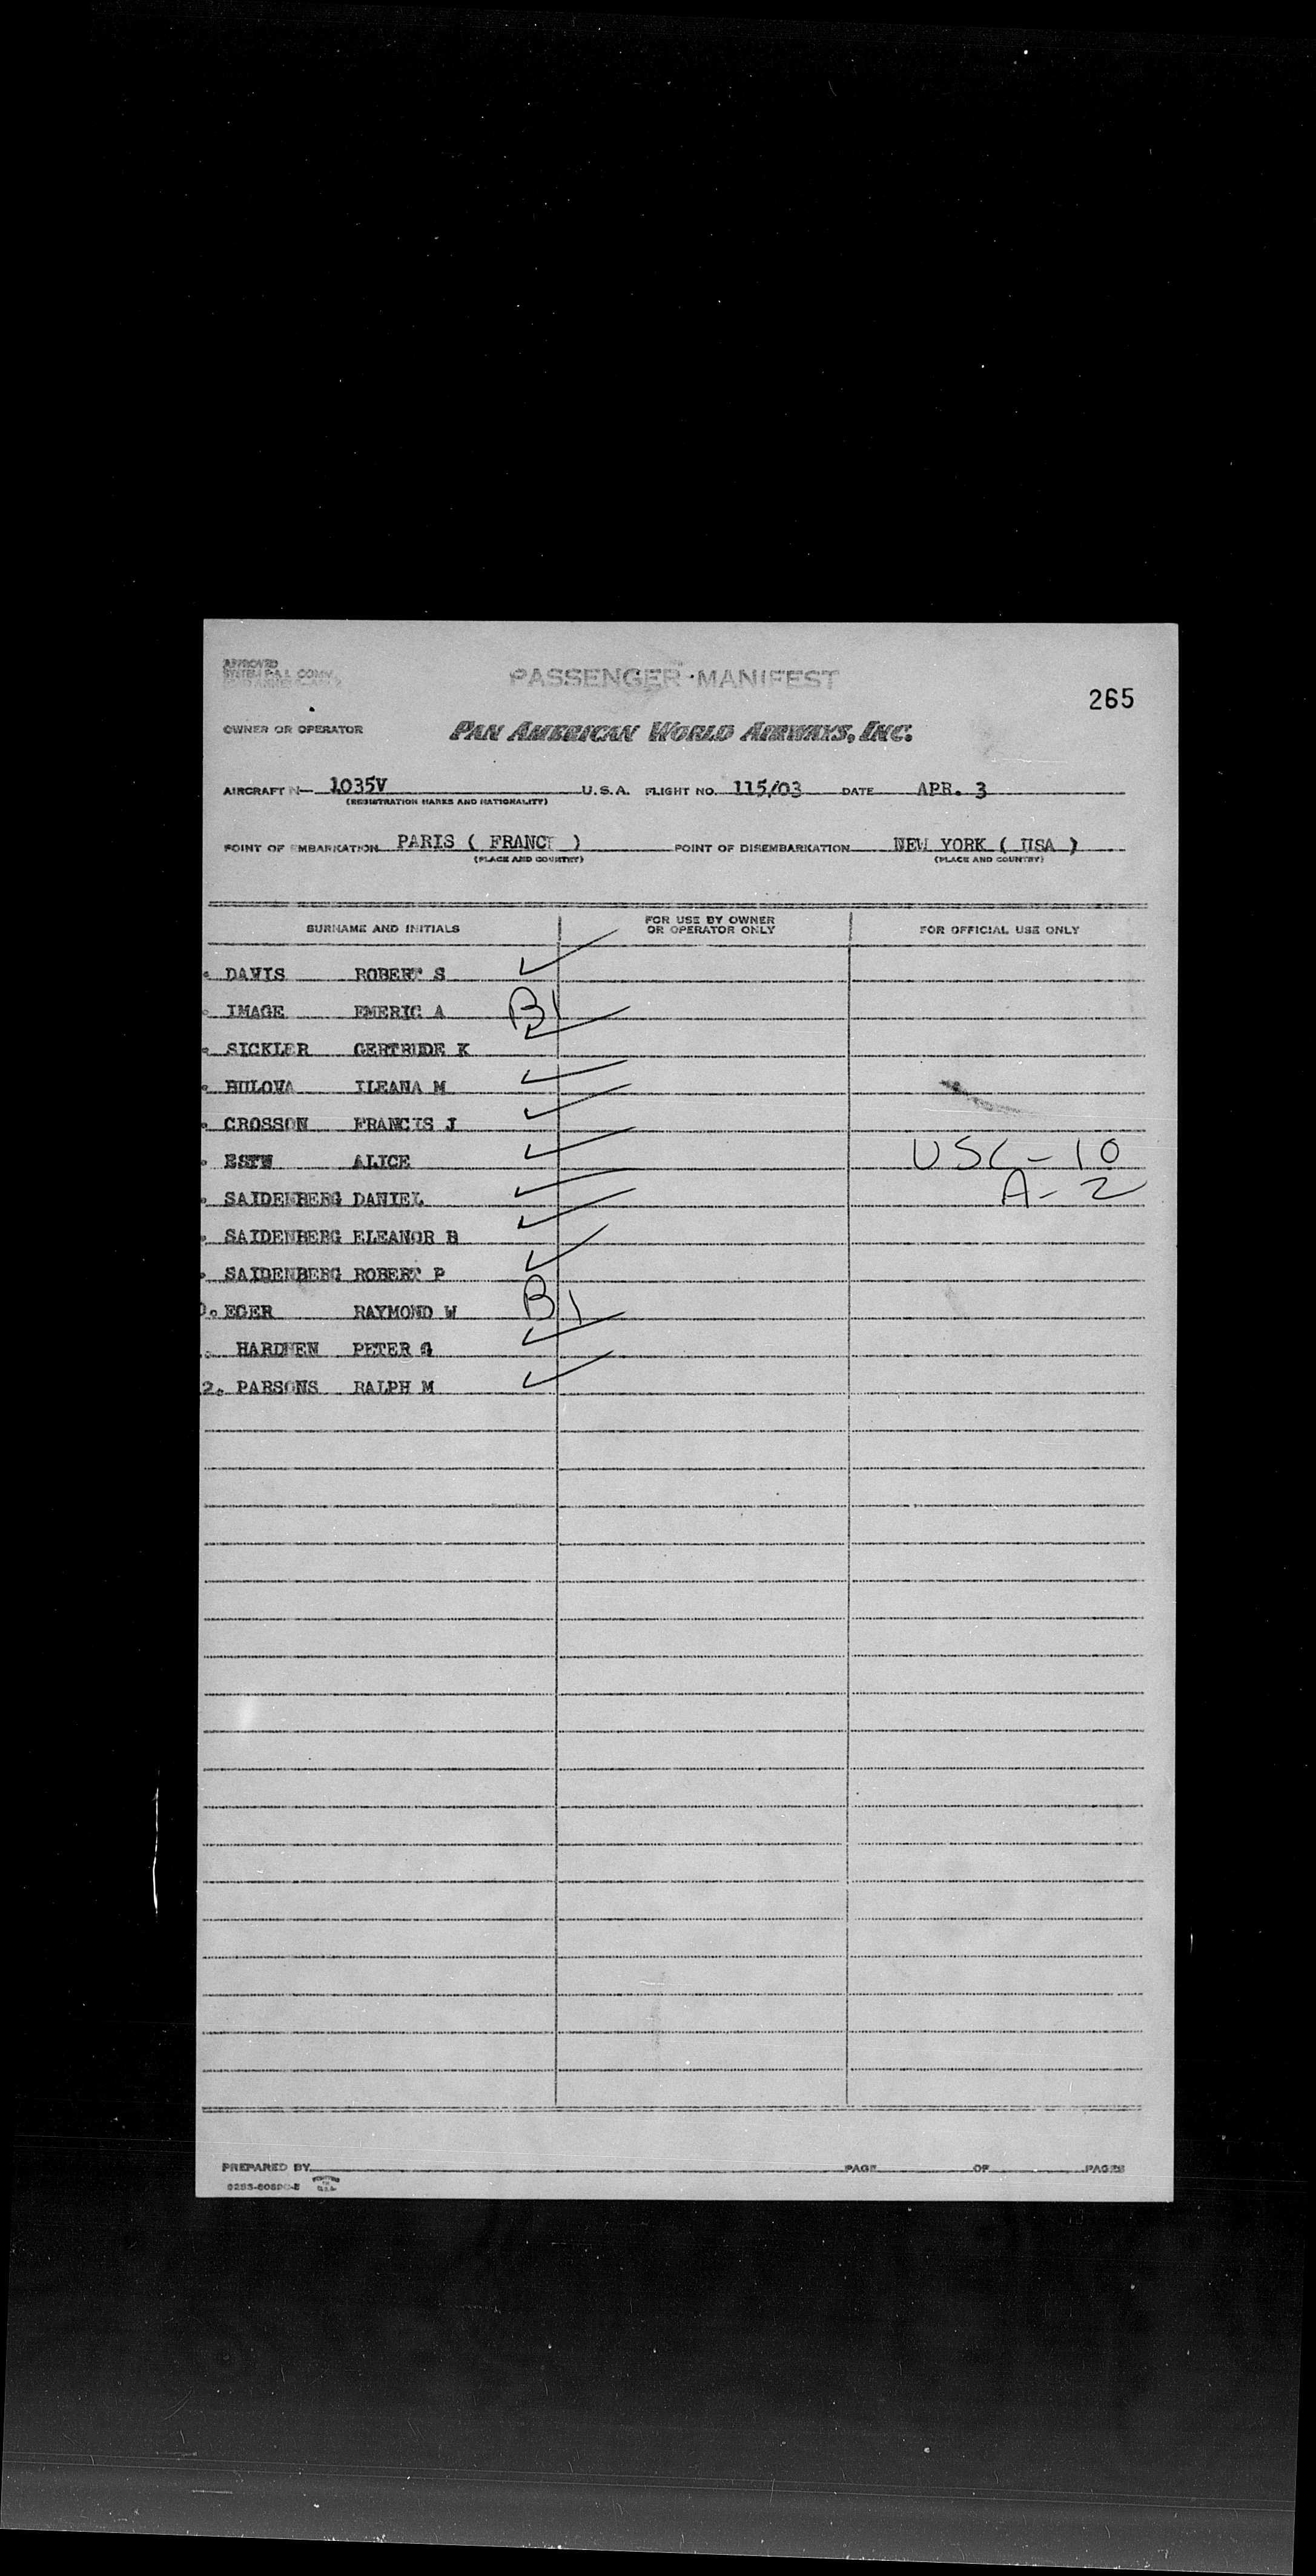 APPROVED
PASSENGER MANIFEST
265
OWNER OR OPERATOR PAN AMERICAN WORLD AIRWAYS, INC.
AIRCRAFT N— 1035V U.S.A. FLIGHT NO. 115/03 DATE APR. 3
(REGISTRATION MARKS AND NATIONALITY)
POINT OF EMBARKATION PARIS ( FRANCE ) POINT OF DISEMBARKATION NEW YORK ( USA )
(PLACE AND COUNTRY) (PLACE AND COUNTRY)
SURNAME AND INITIALS FOR USE BY OWNER OR OPERATOR ONLY FOR OFFICIAL USE ONLY
. DAVIS ROBERT S ✓
. IMAGE EMERIC A B1
. SICKLER GERTRUDE K ✓
. BULOVA ILEANA M ✓
. CROSSON FRANCIS J ✓
. ALICE ✓ USC - 10
. SAIDENBERG DANIEL ✓ A - 2
. SAIDENBERG ELEANOR B ✓
. SAIDENBERG ROBERT P ✓
. EGER RAYMOND W B1
. PETER G ✓
2. PARSONS RALPH M ✓
PREPARED BY PAGE OF PAGES